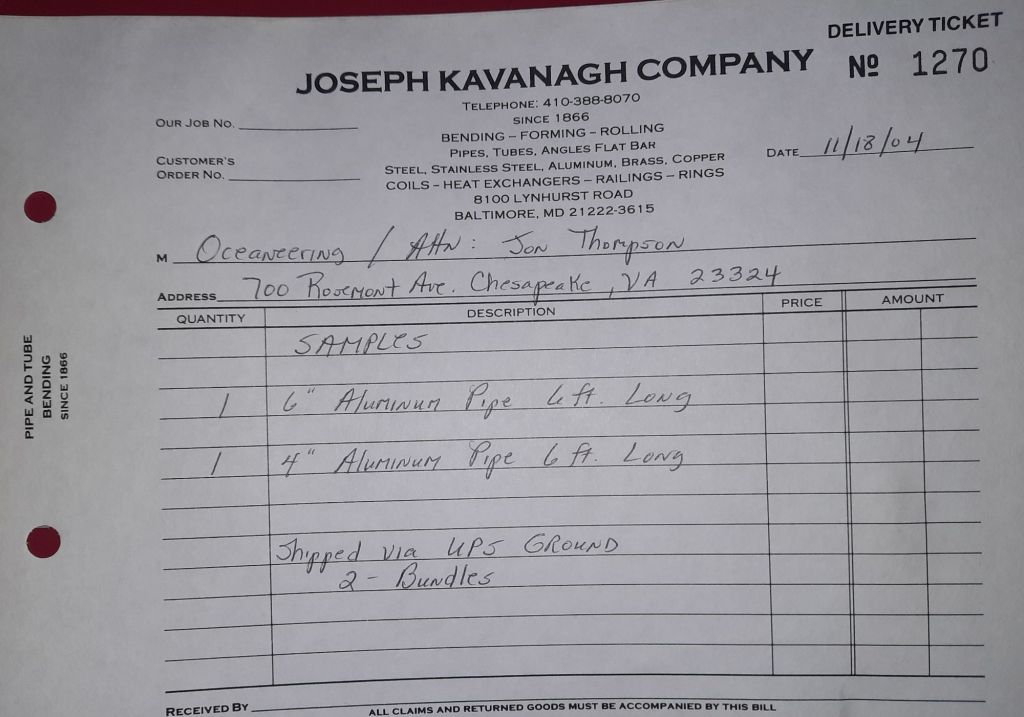 DELIVERY TICKET
JOSEPH KAVANAGH COMPANY
Nº 1270
TELEPHONE: 410-388-8070
SINCE 1866
OUR JOB NO.
BENDING – FORMING – ROLLING
PIPES, TUBES, ANGLES FLAT BAR
DATE 11/18/04
CUSTOMER'S
ORDER NO.
STEEL, STAINLESS STEEL, ALUMINUM, BRASS, COPPER
COILS – HEAT EXCHANGERS – RAILINGS – RINGS
8100 LYNHURST ROAD
BALTIMORE, MD 21222-3615
M Oceaneering / Attn: Jon Thompson
ADDRESS 700 Rosemont Ave. Chesapeake, VA 23324
QUANTITY DESCRIPTION PRICE AMOUNT
SAMPLES
1 6" Aluminum Pipe 6 ft. Long
1 4" Aluminum Pipe 6 ft. Long
Shipped via UPS GROUND
2 - Bundles
PIPE AND TUBE
BENDING
SINCE 1866
RECEIVED BY
ALL CLAIMS AND RETURNED GOODS MUST BE ACCOMPANIED BY THIS BILL